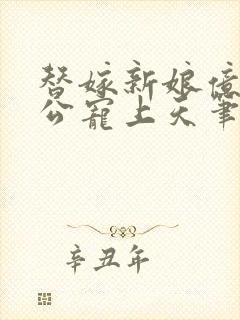 替嫁新娘億
公寵上天筆
辛丑年